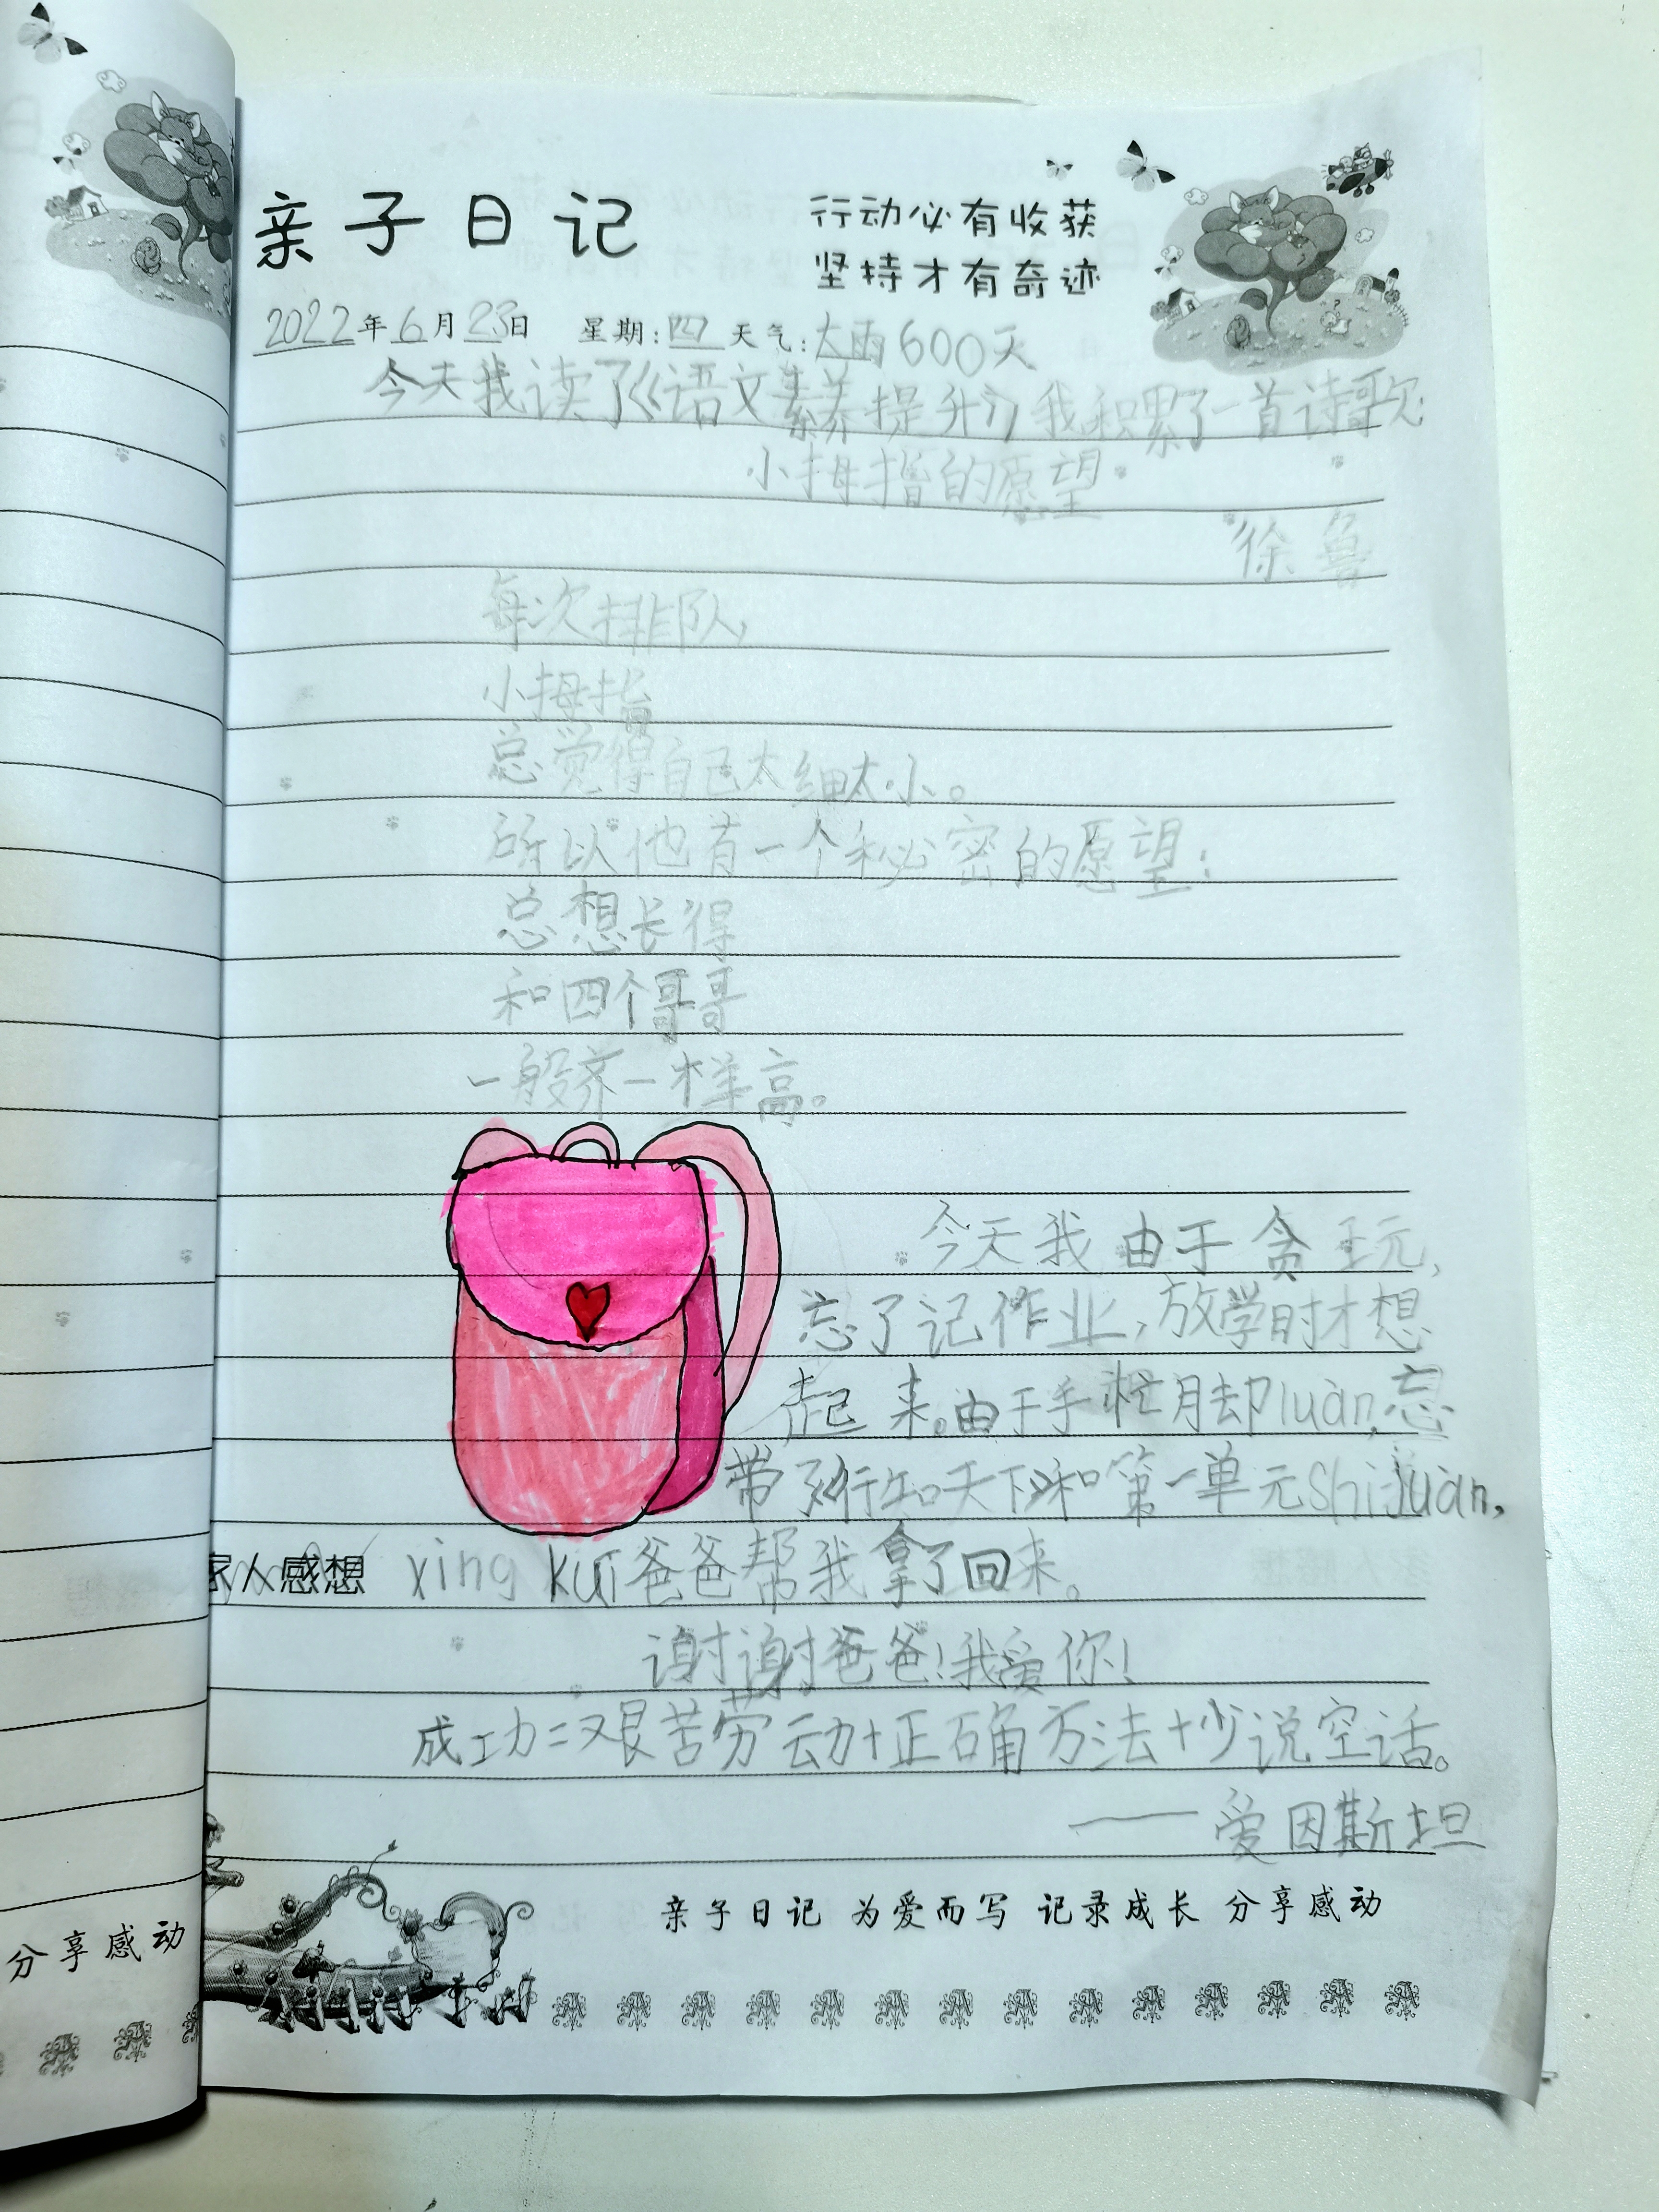 亲子日记
行动必有收获
坚持才有奇迹
2022年6月23日 星期:四 天气:大雨600天
今天我读了《语文素养提升》我积累了一首诗歌:
小拇指的愿望
徐鲁
每次排队,
小拇指
总觉得自己太细太小。
所以他有一个秘密的愿望:
总想长得
和四个哥哥
一般齐一样高。
今天我由于贪玩,
忘了记作业,放学时才想
起来。由于手忙脚luàn,忘
带了《行知天下》和第一单元shìjuàn,
家人感想 xing kuī爸爸帮我拿了回来。
谢谢爸爸!我爱你!
成功=艰苦劳动+正确方法+少说空话。
——爱因斯坦
亲子日记 为爱而写 记录成长 分享感动
分享感动